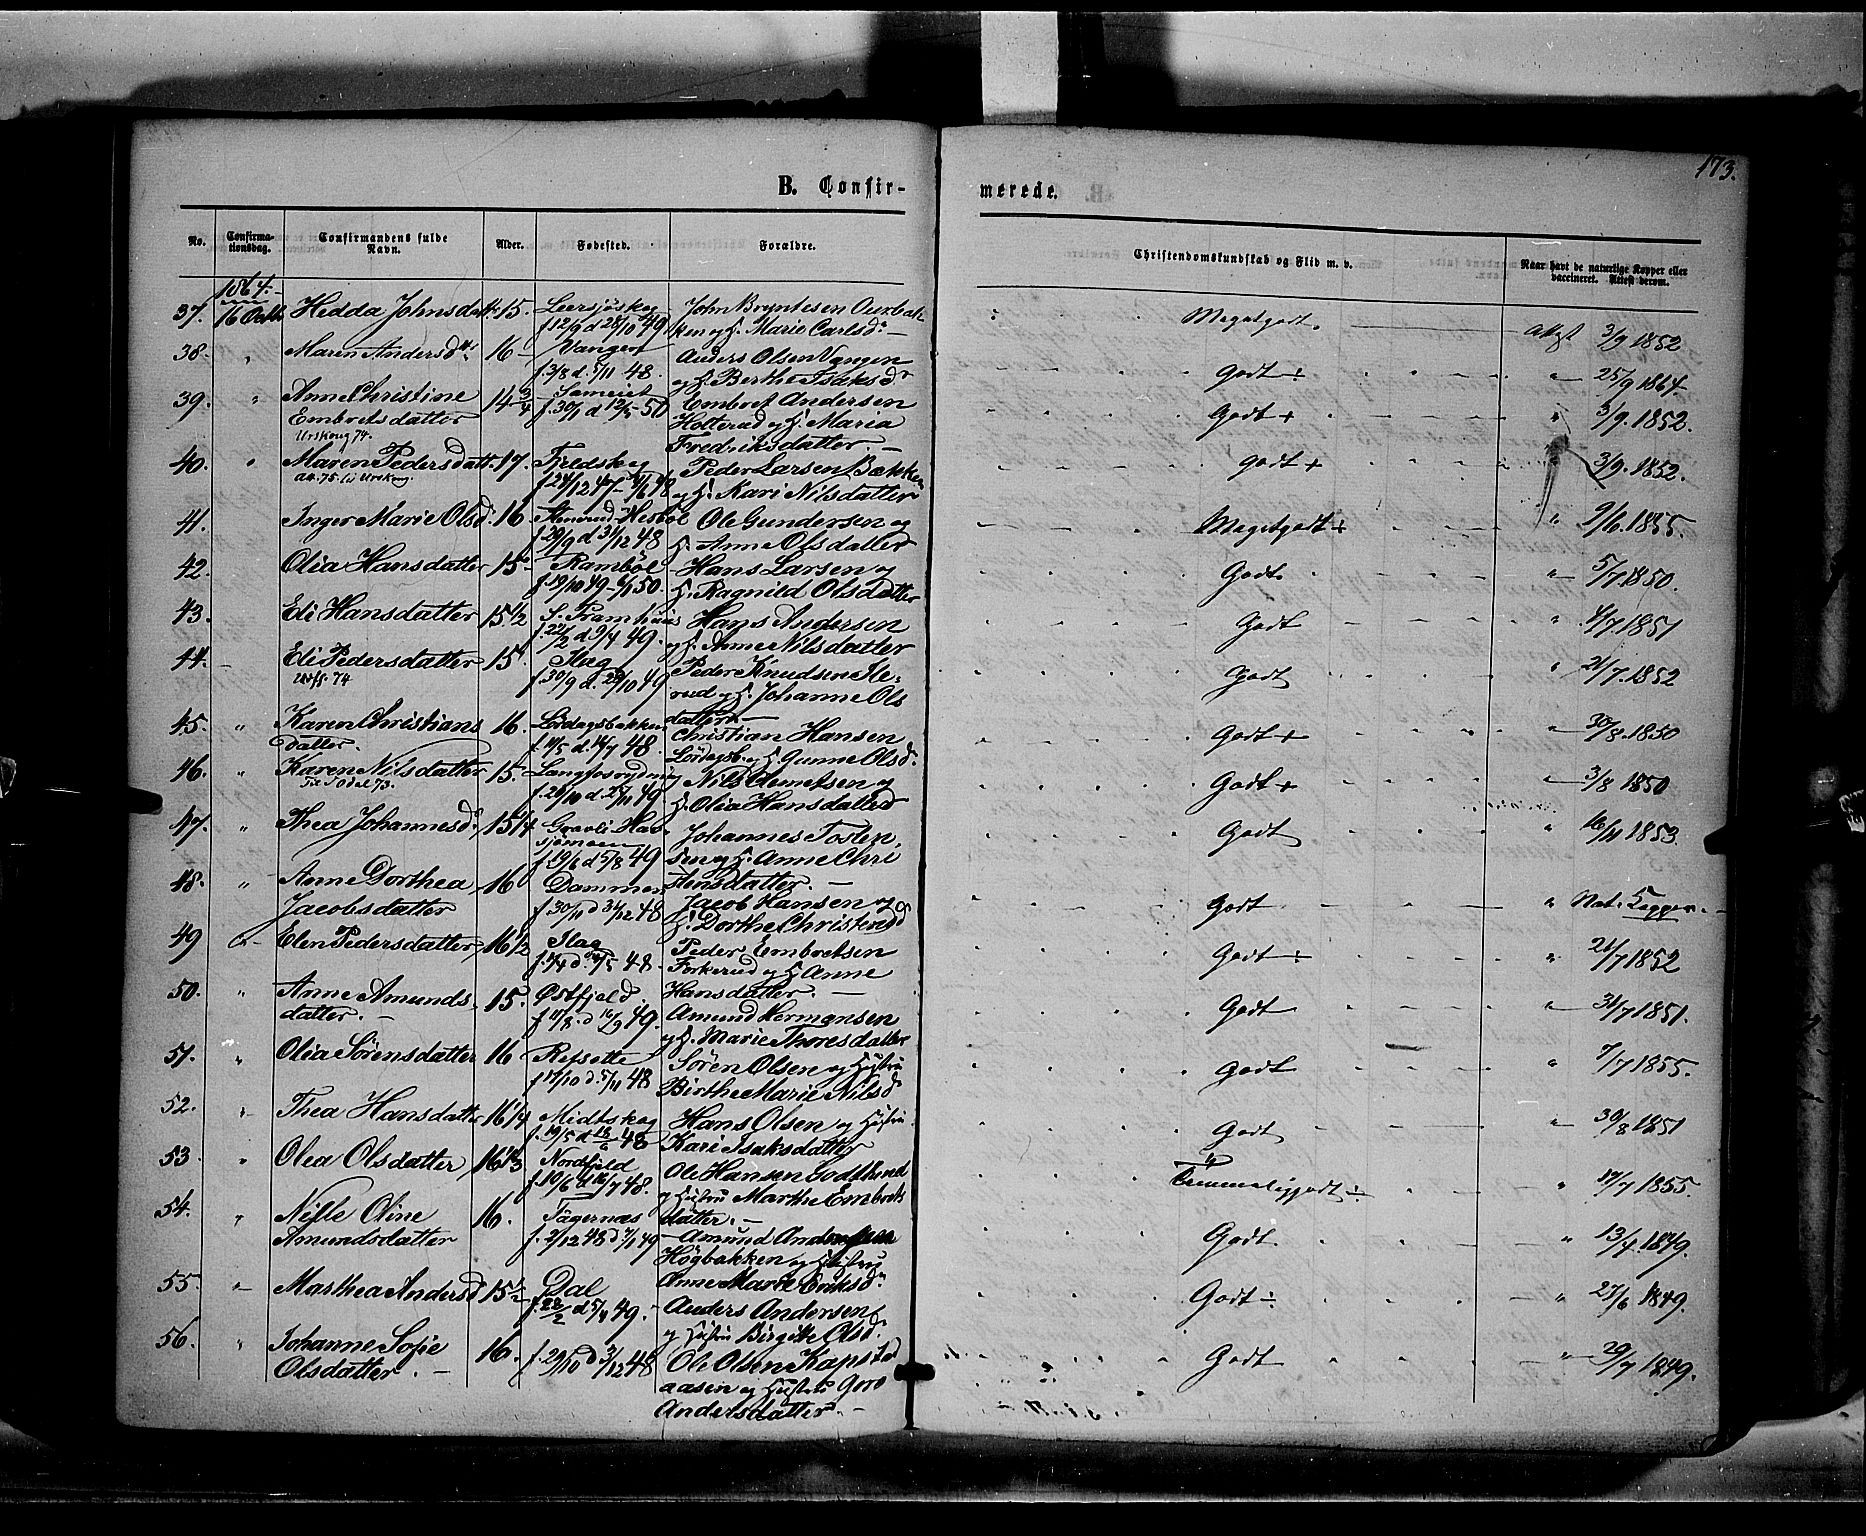 173.
B. Confir-
merede.
No.
Confirma-
tionsdag.
Confirmandens fulde
Navn.
Alder.
Fødested.
Forældre.
Christendomskundskab og Flid m. v.
Naar havt de naturlige Kopper eller
vaccineret. Attest derom.
1864.
37. 16 Octb. Hedda Johnsdatt. 15. Leersjöskog John Bryntesen Ourbak-
f 12/9 d 28/10 49 ken og H. Marie Carlsd. —
Megetgodt. Attst 3/9 1852
38. " Maren Andersd. 16 Vangen Anders Olsen Vangen
f 3/8 d. 5/11 48. og H. Berthe Isaksd.
Godt ÷ " 25/9 1864.
39. " Anne Christine 14 3/4 Sameiet Embret Andersen
Embretsdatter f. 30/1 d 12/5 50 Holterud og H. Maria
Urskoug 74. Fredriksdatter. —
Godt + " 3/9. 1852.
40. " Maren Pedersdatt. 17. Fjeldskog Peder Larsen Bækken
att. 75 til Urskoug. f 24/12 47 - 4/6 48 og H. Kari Nilsdatter
Godt + " 3/9. 1852.
41. Inger Marie Olsd. 16. Hesböl Ole Gundersen og
f 29/9 d 31/12 48 H. Anne Olsdatter
Megetgodt + " 9/6. 1855.
42. Olia Hansdatter 15 Ramböl Hans Larsen og
f. 19/10 49 - 6/1 50. H. Ragnild Olsdatter
Godt. " 5/7 1850.
43. Edi Hansdatter 15 1/2 S. Framhuus Hans Andersen
f. 22/2 d 9/4 49. og H. Anne Nilsdatter
Godt " 4/7. 1851
44. Eli Pedersdatter 15. Flag Peder Knudsen He-
Utfl. 74 f. 30/9 d. 28/10 49 rud og H. Johanne Ols
datter. —
Godt " 21/7. 1852
45. " Karen Christians 16. Lördagsbakken Christian Hansen
datter. f 14/5 d. 16/7 48. Lördagsb. og H. Gunne Olsd.
Godt + " 30/8. 1850
46. " Karen Nilsdatter 15. Langfosrydning Nils Clemetsen og
73. f. 20/10 d. 25/11 49 H. Olia Hansdatter
Godt + " 3/8 1850
47. " Thea Johannesd. 15 1/4 Gravli Hav- Johannes Tosten,
sjömoen sen og H. Anne Chri
f. 19/6 d 5/8 49 stensdatter. —
Godt " 16/11 1853.
48. " Anne Dorthea 16 Dammen Jacob Hansen og
Jacobsdatter f 30/11 d 31/12 48 H. Dorthe Christensd
Godt " Nat. Kopper. —
49 Elen Pedersdatter, 16 1/2 Flag Peder Embretsen
Forkerud og H. Anne
Hansdatter. —
Godt ÷ " 21/7 1852
50. " Anne Amunds, 15. Østfjeld. Amund Hermansen
datter. — f 11/8. d 16/9 49. og H. Marie Thoresdatter
Godt " 31/7 1851.
51. " Olia Sörensdatter 16 Refsette Sören Olsen og Hustru
f 17/10 d. 5/11 48 Birthe Marie Nilsd
Godt " 7/7 1855.
52. " Thea Hansdatter 16 1/4 Midtskog Hans Olsen og Hustru
f. 19/5 d 18/6 48 Kari Isaksdatter
Godt " 30/8 1851
53. " Olea Olsdatter, 16 1/3 Nordfjeld Ole Hansen Godthand
f 10/6 d 16/7 48. og Hustru Marthe Embrets
datter. —
Temmeliggodt ÷ " 17/7 1855.
54. " Nille Oline 16. Tägernæs Amund Andersen
Amundsdatter f. 2/12 48 d 7/1 49 Högbakken og Hustru
Anne Marie Eriksd.
Godt. " 13/4. 1849.
55. " Marthea Andersd 15 1/2 Dal Anders Andersen
f. 22/2 d 5/4 49. og Hustru Birgitte Olsd.
Godt ÷ " 27/6 1849.
56. " Johanne Sofie 16. f. 29/10 d 3/12 48 Ole Olsen Kapstad
Olsdatter. — aasen og Hustru Goro
Andersdatter. —
Godt " 29/7 1849.